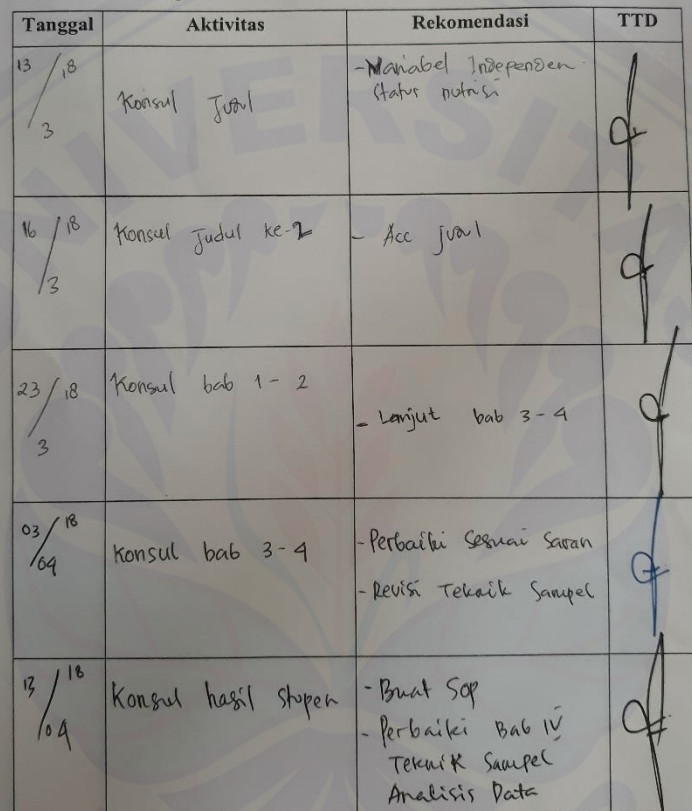 Tanggal Aktivitas Rekomendasi TTD
13/3 18 Konsul Judul - Variabel Independen
status nutrisi
16/3 18 Konsul Judul ke-2 - Acc judul
23/3 18 Konsul bab 1 - 2 - Lanjut bab 3 - 4
03/04 18 Konsul bab 3 - 4 - Perbaiki sesuai saran
- Revisi Teknik Sampel
13/04 18 Konsul hasil stupen - Buat SOP
- Perbaiki Bab IV
Teknik Sampel
Analisis Data
UNIVERSITAS